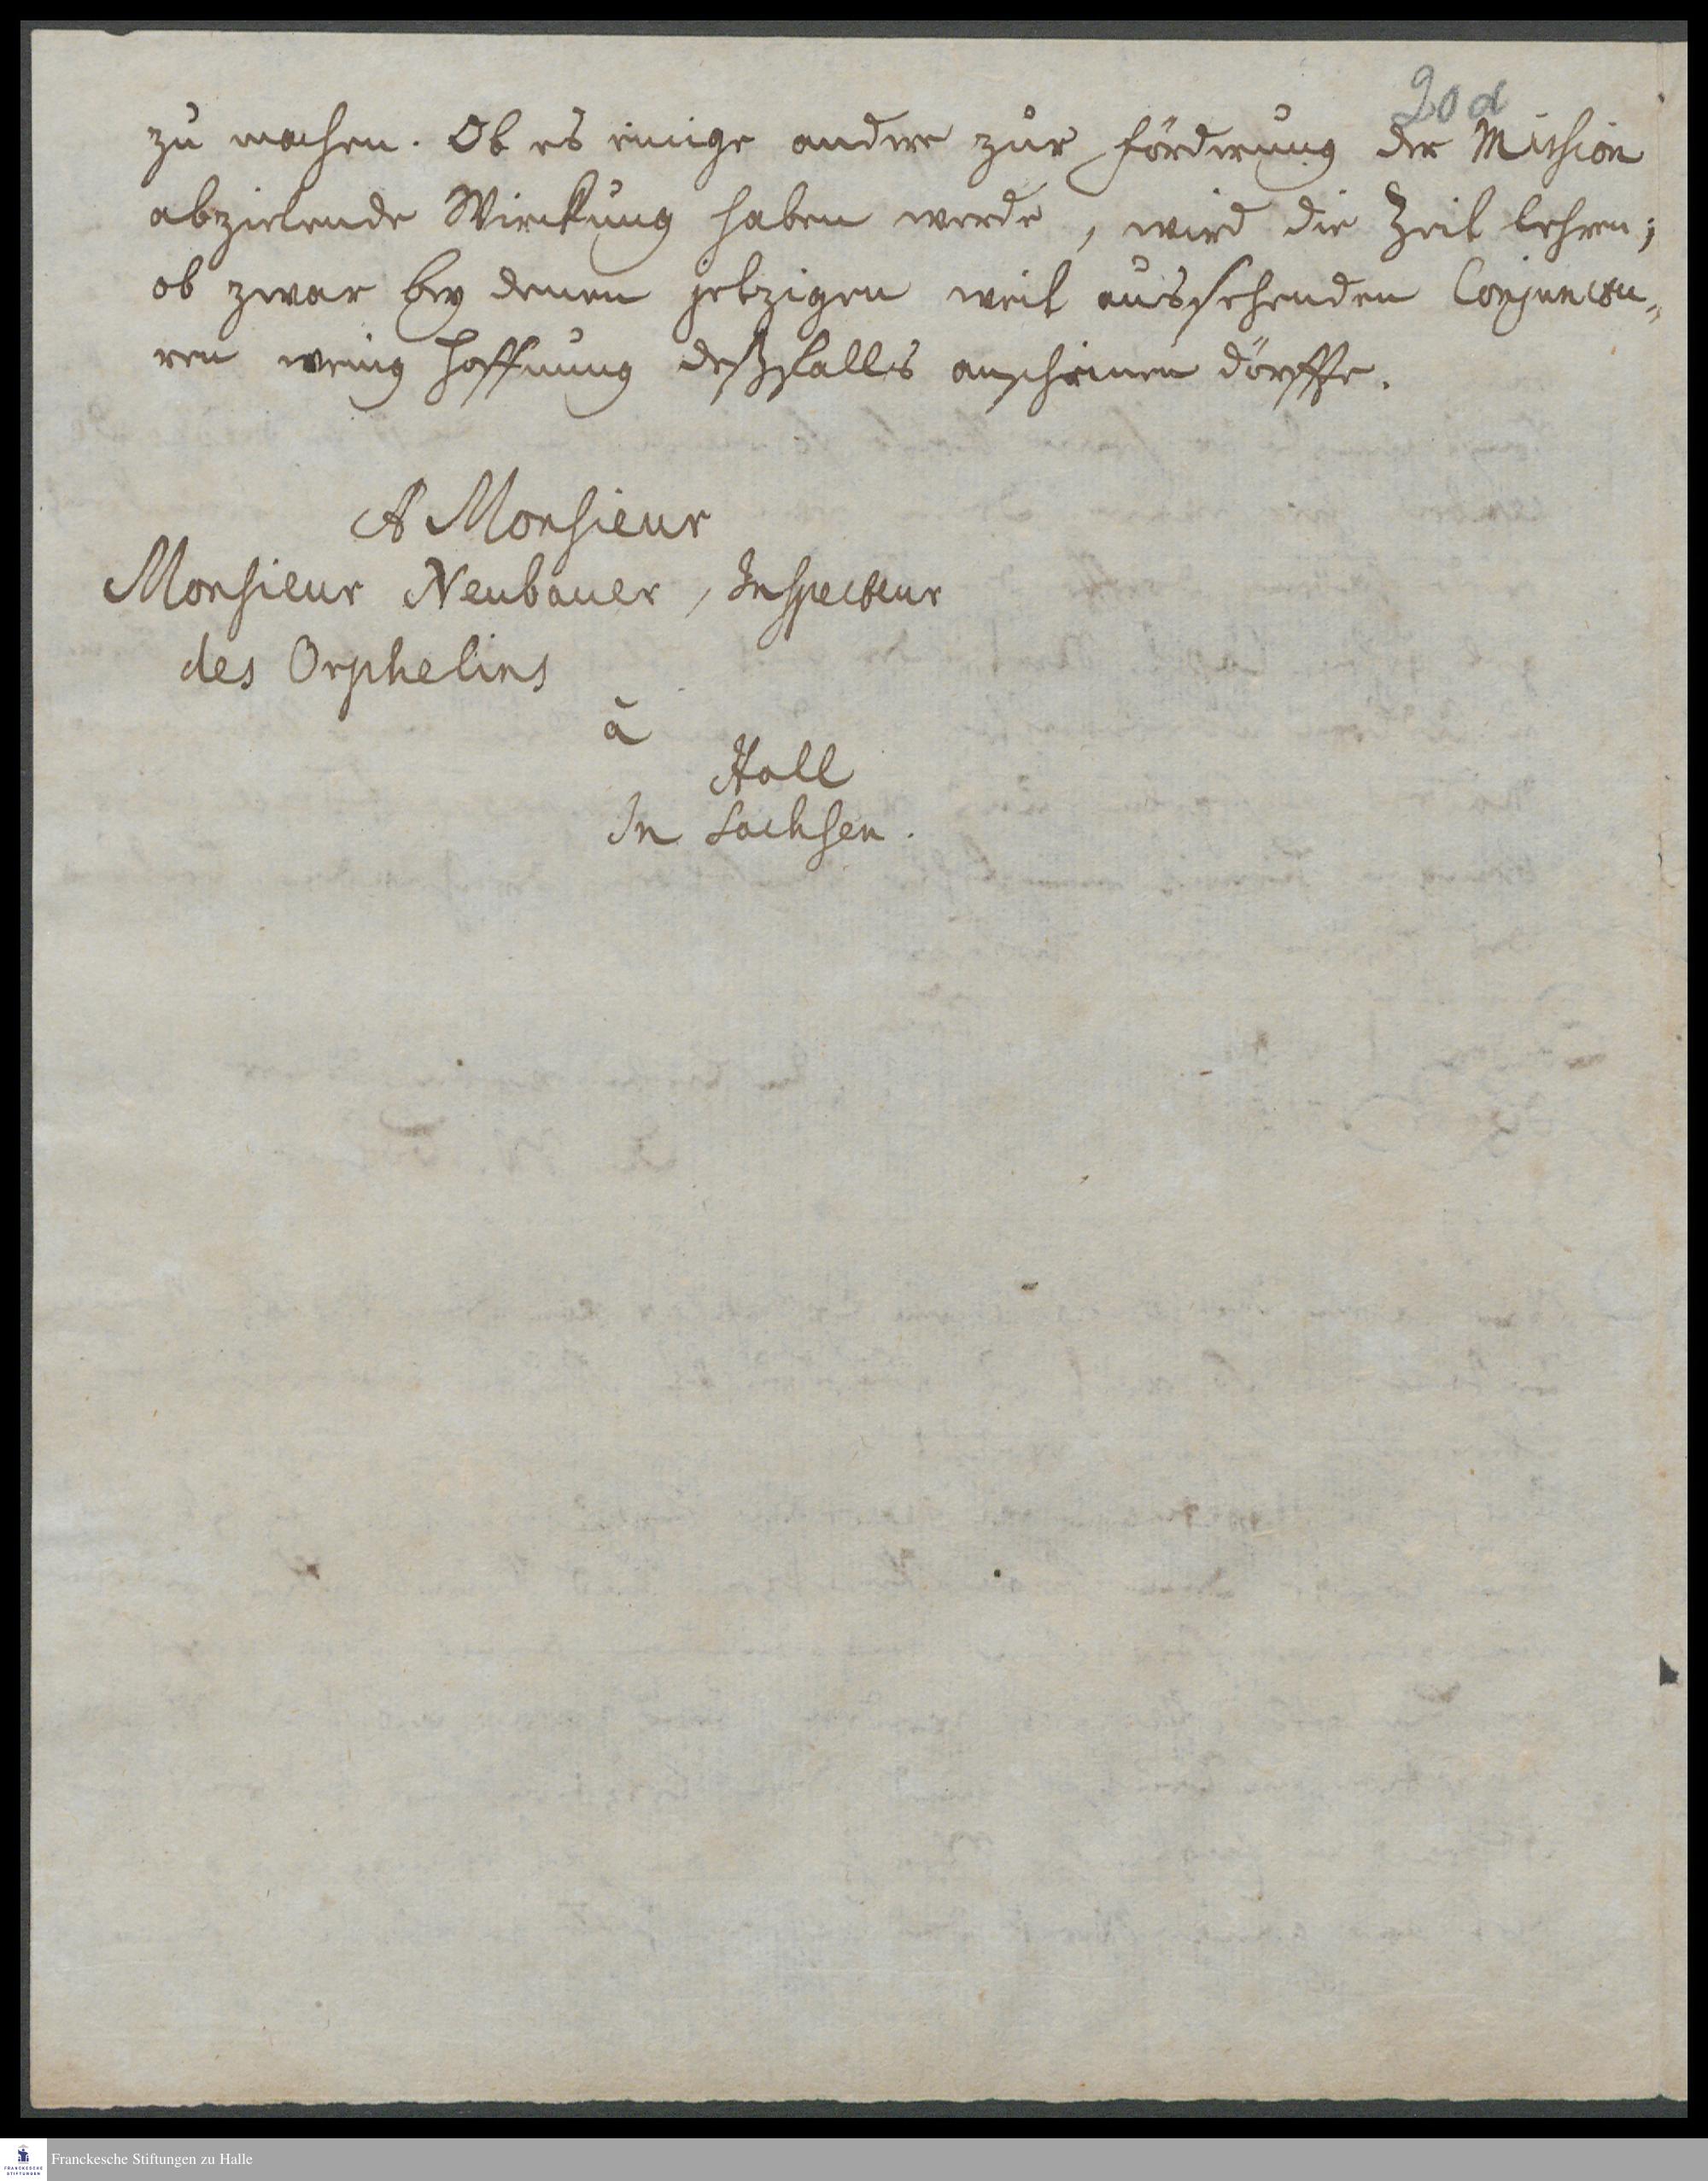 20d
zu machen. Ob es einige andere zur förderung der Mission
abzielende Wirckung haben werde, wird die Zeit lehren;
ob zwar bey denen jetzigen weit aussehenden Conjunctu„
ren wenig Hoffnung deßfalls anscheinen dörffte.
A Monsieur
Monsieur Neubauer, Inspecteur
des Orphelins
à
Hall
In Sachsen.
FRANCKESCHE
STIFTUNGEN
Franckesche Stiftungen zu Halle